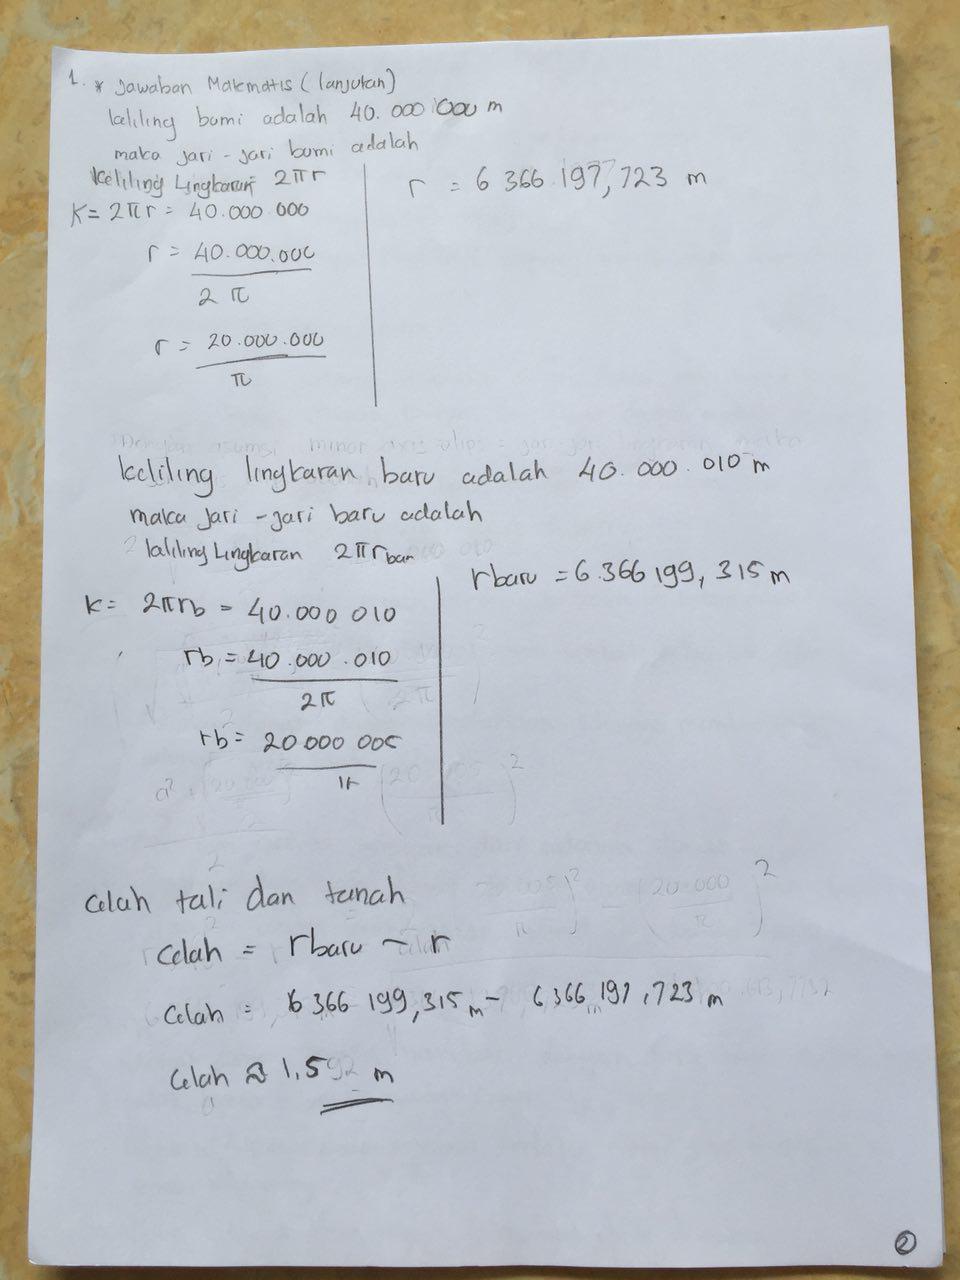 1. * Jawaban Matematis (lanjutan)
keliling bumi adalah 40.000 000 m
maka jari - jari bumi adalah
keliling Lingkaran 2πr
K = 2πr = 40.000 000
r = 40.000.000
2 π
r = 20.000.000
π
r = 6 366 197,723 m
keliling lingkaran baru adalah 40.000.010 m
maka jari - jari baru adalah
keliling Lingkaran 2πr baru
K = 2πrb = 40.000 010
rb = 40.000.010
2π
rb = 20 000 005
π
rbaru = 6.366 199,315 m
celah tali dan tanah
celah = rbaru - r
celah = 6 366 199,315 m - 6,366 197,723 m
celah ≈ 1,592 m
2